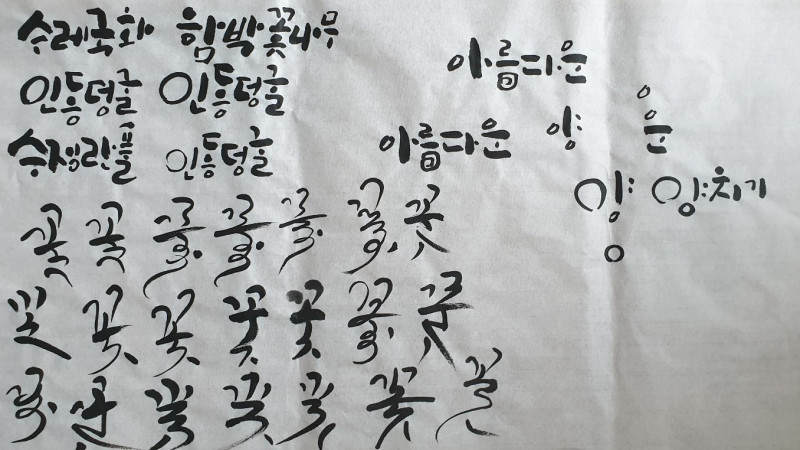 수레국화 함박꽃나무
인동덩굴 인동덩굴
수정란풀 인동덩굴
아름다운
아름다운 양 운
양 양치기
꽃 꽃 꽃 꽃 꽃 꽃 꽃
꽃 꽃 꽃 꽃 꽃 꽃 꽃
꽃 꽃 꽃 꽃 꽃 꽃 꽃